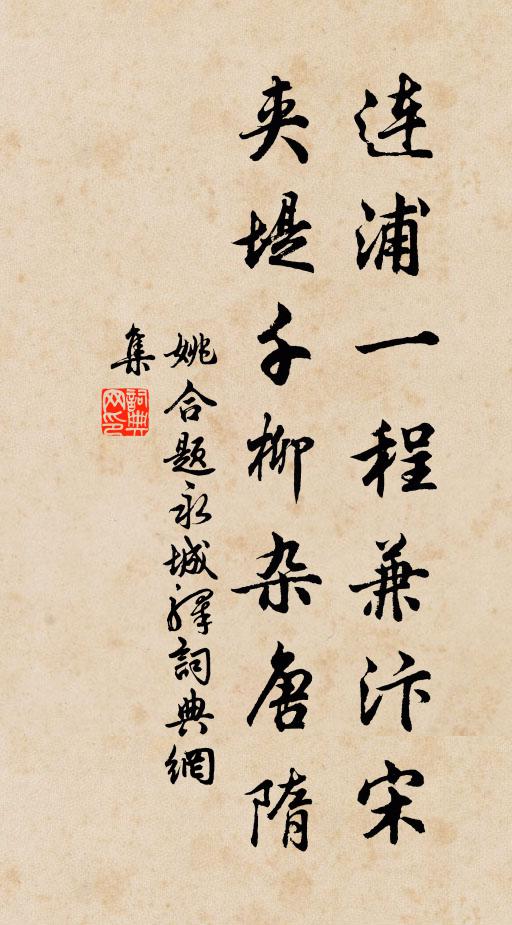 连浦一程兼汴宋
夹堤千柳杂唐隋
姚合题永城驿詞典網
集
詞典网印